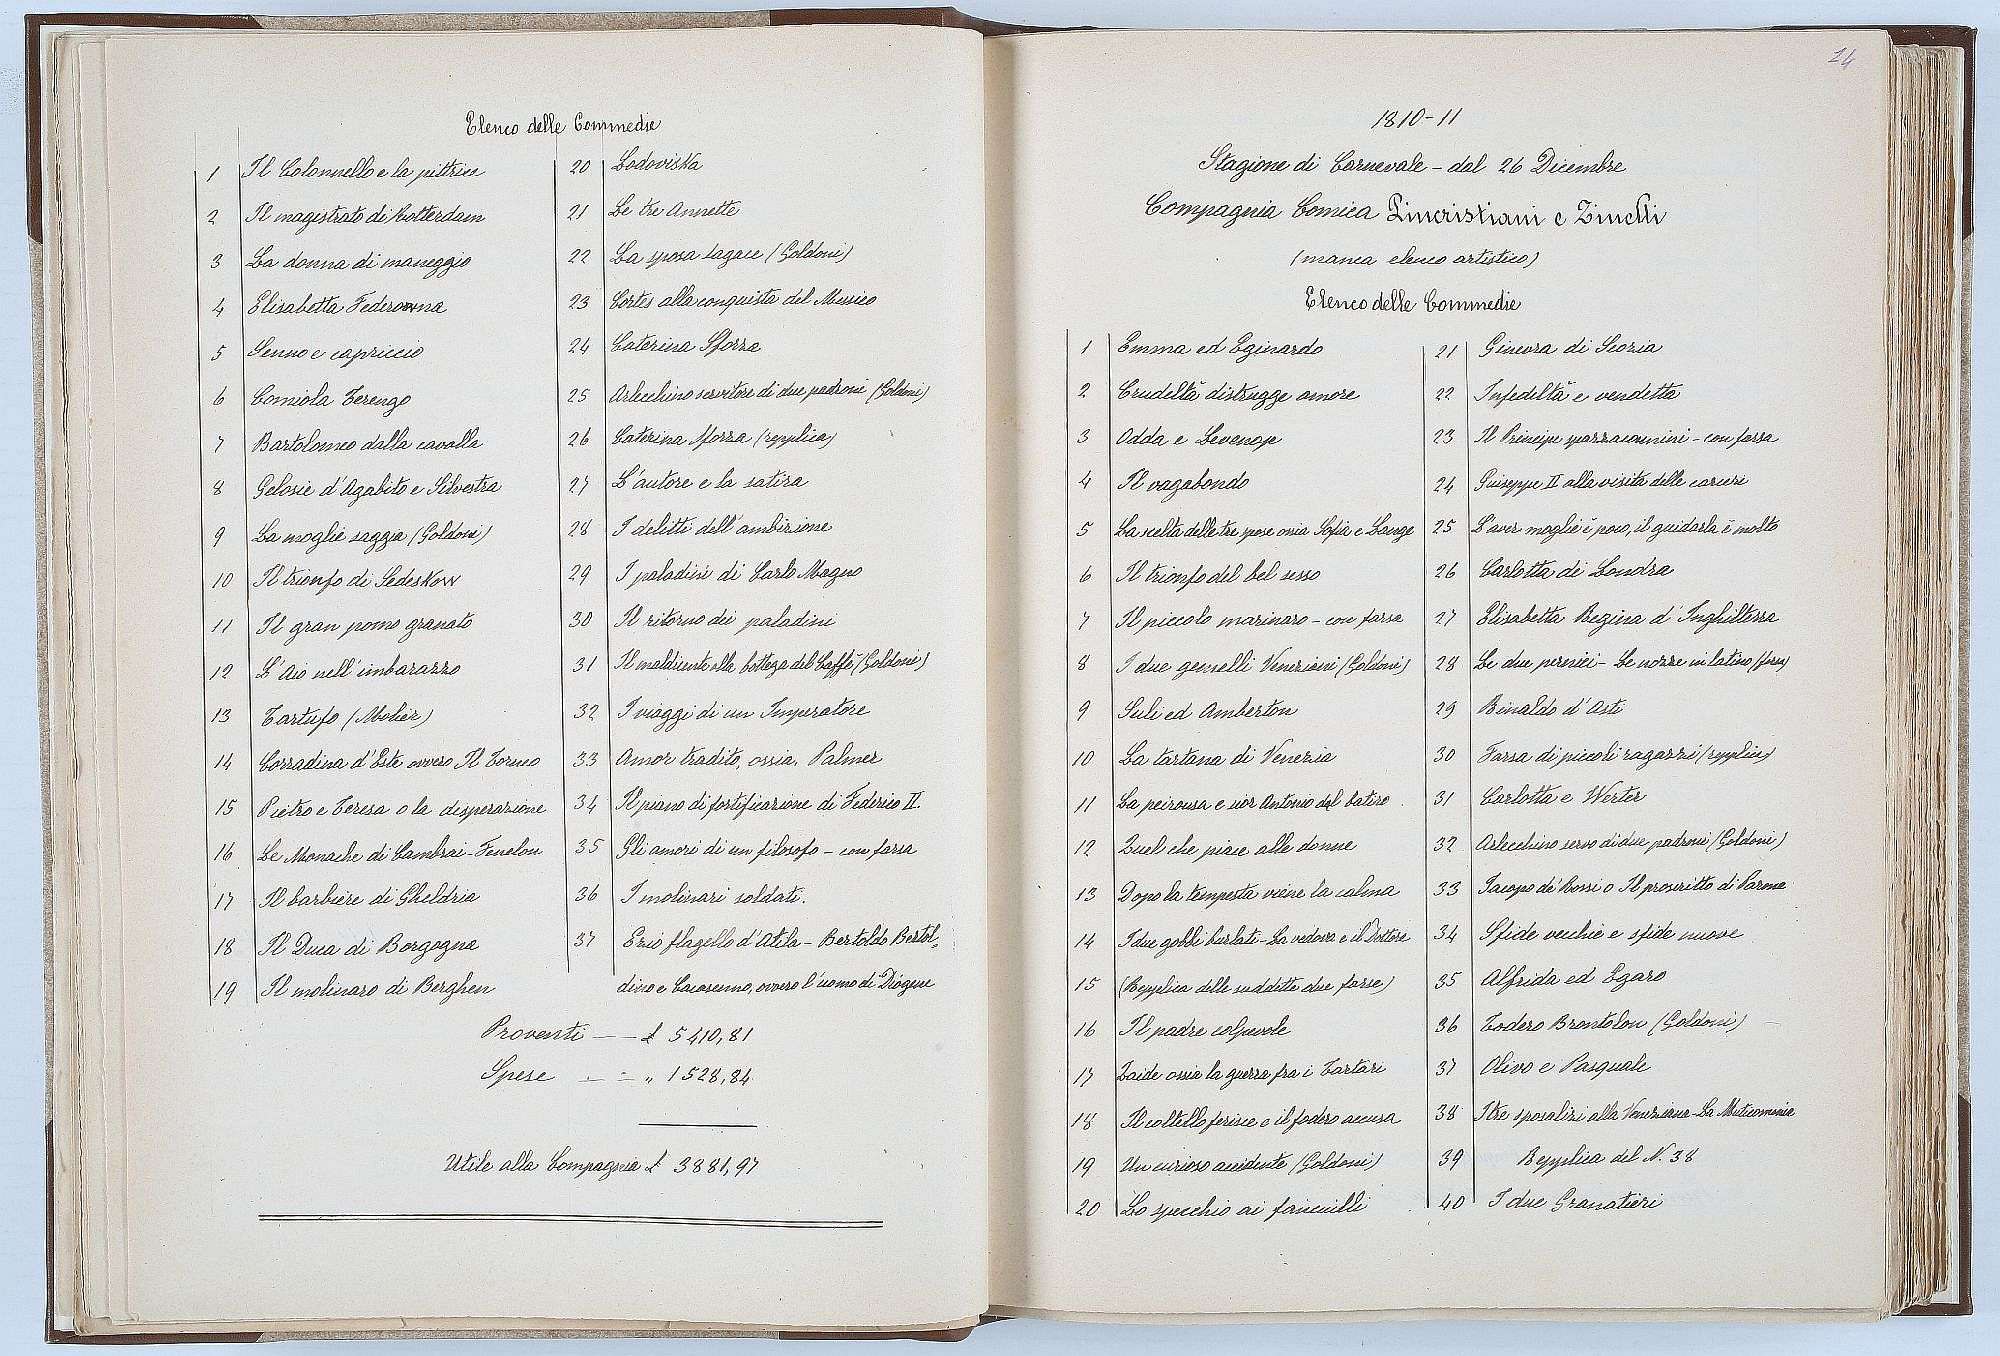 Elenco delle Commedie
1 Il Colonnello e la pittrice
2 Il magistrato di Rotterdam
3 La donna di maneggio
4 Elisabetta Federowna
5 Senno e capriccio
6 Comiola Terengo
7 Bartolomeo dalla cavalla
8 Gelosie d'Agabito e Silvestra
9 La moglie saggia (Goldoni)
10 Il trionfo di Sedeskow
11 Il gran pomo granato
12 L'Aio nell'imbarazzo
13 Tartufo (Molièr)
14 Corradina d'Este ovvero Il Torneo
15 Pietro e Teresa o la desperazione
16 Le Monache di Cambrai - Fenelon
17 Il barbiere di Gheldria
18 Il Duca di Borgogna
19 Il molinaro di Berghen
20 Lodoviska
21 Le tre Annette
22 La sposa sagace (Goldoni)
23 Cortes alla conquista del Messico
24 Caterina Sforza
25 Arlecchino servitore di due padroni (Goldoni)
26 Caterina Sforza (replica)
27 L'autore e la satira
28 I delitti dell'ambizione
29 I paladini di Carlo Magno
30 Il ritorno dei paladini
31 Il maldicente alla bottega del Caffè (Goldoni)
32 I viaggi di un Imperatore
33 Amor tradito, ossia, Palmer
34 Il piano di fortificazione di Federico II.
35 Gli amori di un filosofo - con farsa
36 I molinari soldati.
37 Ezio flagello d'Atila - Bertoldo Bertol-
dino e Cacasenno, ovvero l'uomo di Diogene
Proventi — — £ 5410,81
Spese – = „ 1528,84
Utile alla Compagnia £ 3881,97
24
1810-11
Stagione di Carnevale - dal 26 Dicembre
Compagnia Comica Pincristiani e Zinelli
(manca elenco artistico)
Elenco delle Commedie
1 Emma ed Eginardo
2 Crudeltà distrugge amore
3 Odda e
4 Il vagabondo
5 La scelta delle tre spose ossia Sofia e Lange
6 Il trionfo del bel sesso
7 Il piccolo marinaro - con farsa
8 I due gemelli Veneziani (Goldoni)
9 Suli ed Amberton
10 La tartana di Venezia
11 La peirousa e sior Antonio dal batiro
12 Quel che piace alle donne
13 Dopo la tempesta viene la calma
14 I due gobbi burlati - La vedova e il Dottore
15 (Repplica delle suddette due farse)
16 Il padre colpevole
17 Zaide ossia la guerra fra i Tartari
18 Il coltello ferisce e il fodero accusa
19 Un curioso accidente (Goldoni)
20 Lo specchio ai fanciulli
21 Ginevra di Scozia
22 Infedeltà e vendetta
23 Il Principe spazzacamini - con farsa
24 Guiseppe II alla visita delle carceri
25 L'aver moglie è poco, il guidarla è molto
26 Carlotta di Londra
27 Elisabetta Regina d'Inghilterra
28 Le due pernici - Le nozze in latino (farsa)
29 Rinaldo d'Asti
30 Farsa di piccoli ragazzi (repplica)
31 Carlotta e Werter
32 Arlecchino servo di due padroni (Goldoni)
33 Jacopo de' Rossi o Il proscritto di Parma
34 Sfide vecchie e sfide nuove
35 Alfrida ed Egaro
36 Todero Brontolon (Goldoni)
37 Olivo e Pasquale
38 I tre sposalizi alla Veneziana - La Muticomania
39 Repplica del N. 38
40 I due Granatieri